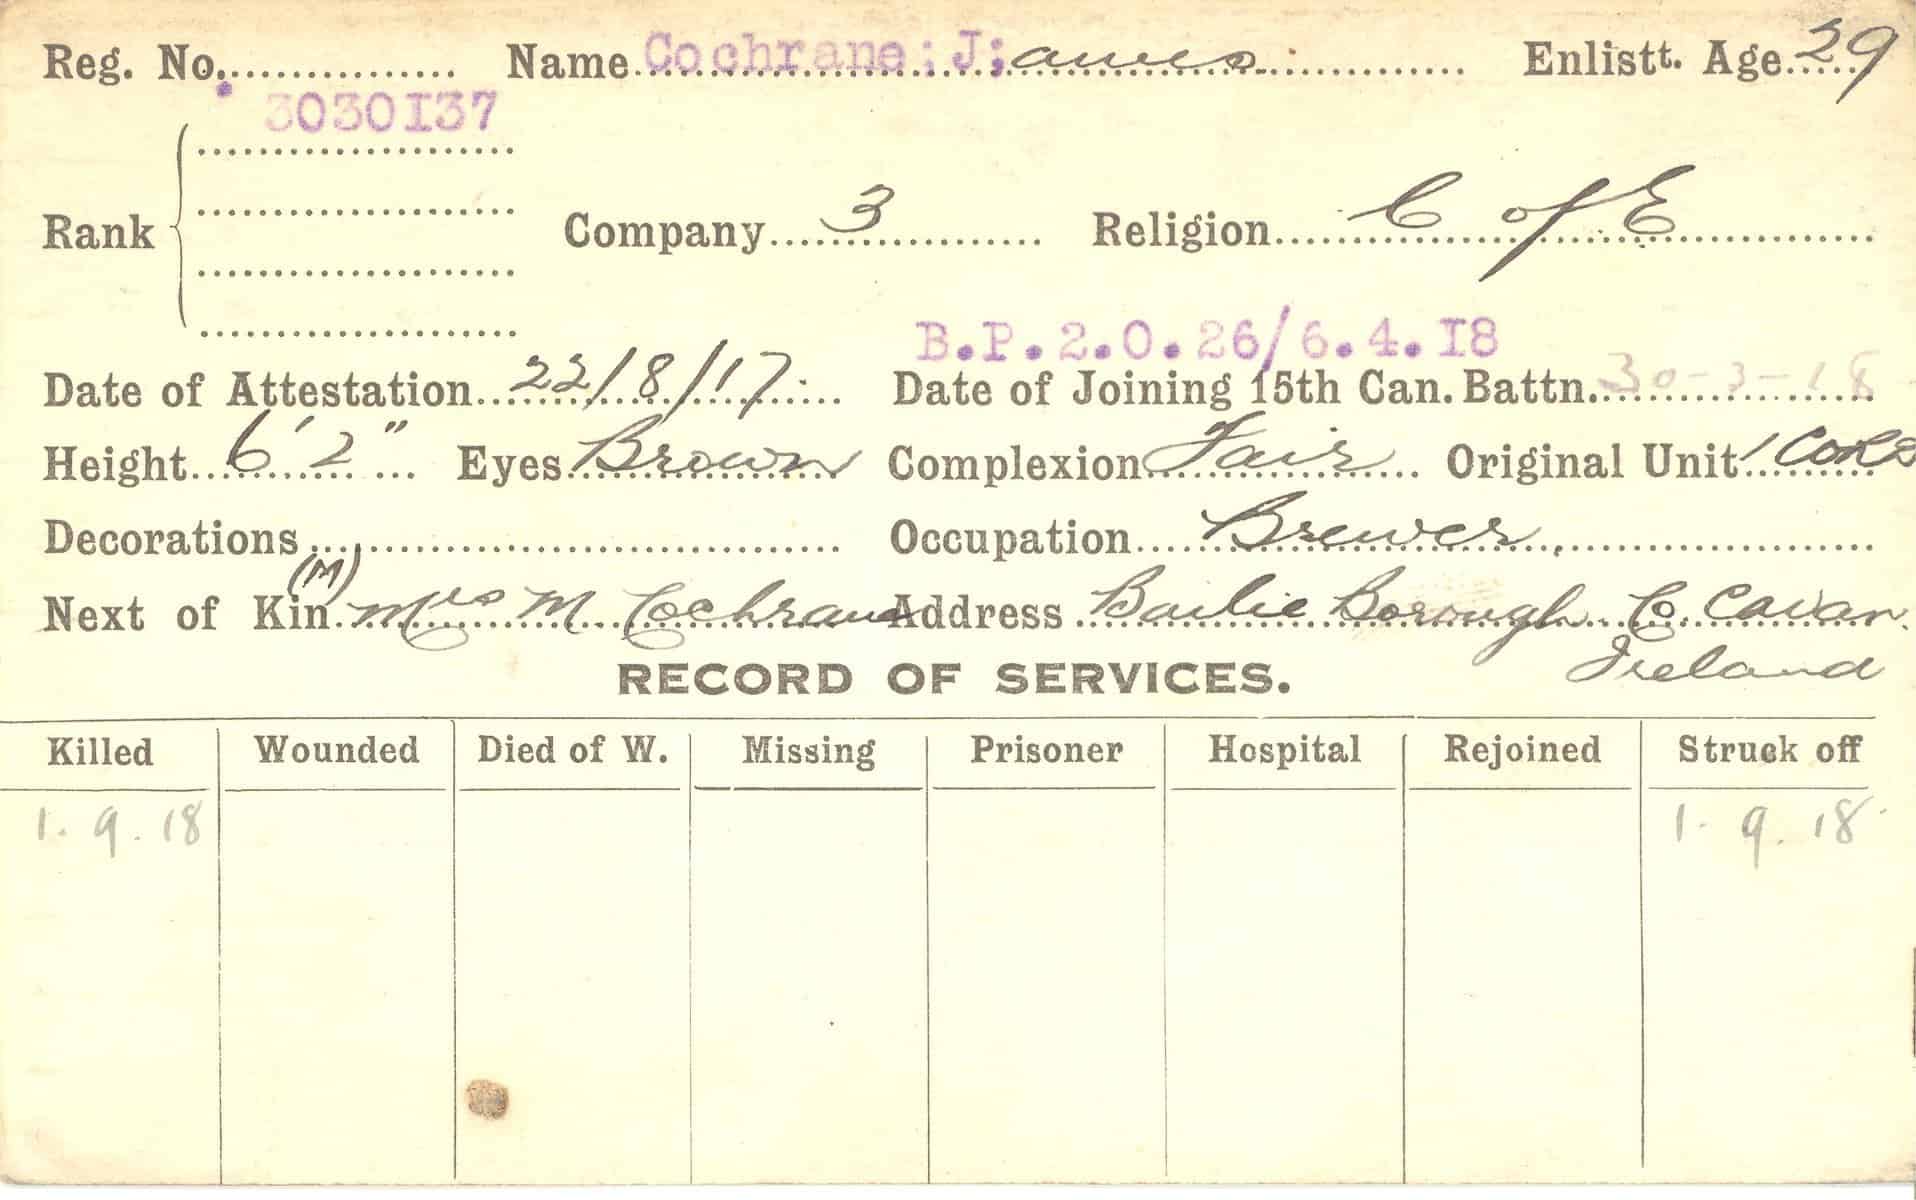 Reg. No. Name Cochrane; J;ames Enlistt. Age 29
3030137
Rank Company 3 Religion C of E
B.P.2.O.26/6.4.18
Date of Attestation 22/8/17 Date of Joining 15th Can. Battn. 30-3-18
Height 6' 2" Eyes Brown Complexion Fair Original Unit 1 CORS
Decorations Occupation Brewer
(M)
Next of Kin Mrs M Cochrane Address Bailie Borough Co. Cavan
Ireland
RECORD OF SERVICES.
Killed Wounded Died of W. Missing Prisoner Hospital Rejoined Struck off
1. 9. 18 1. 9. 18